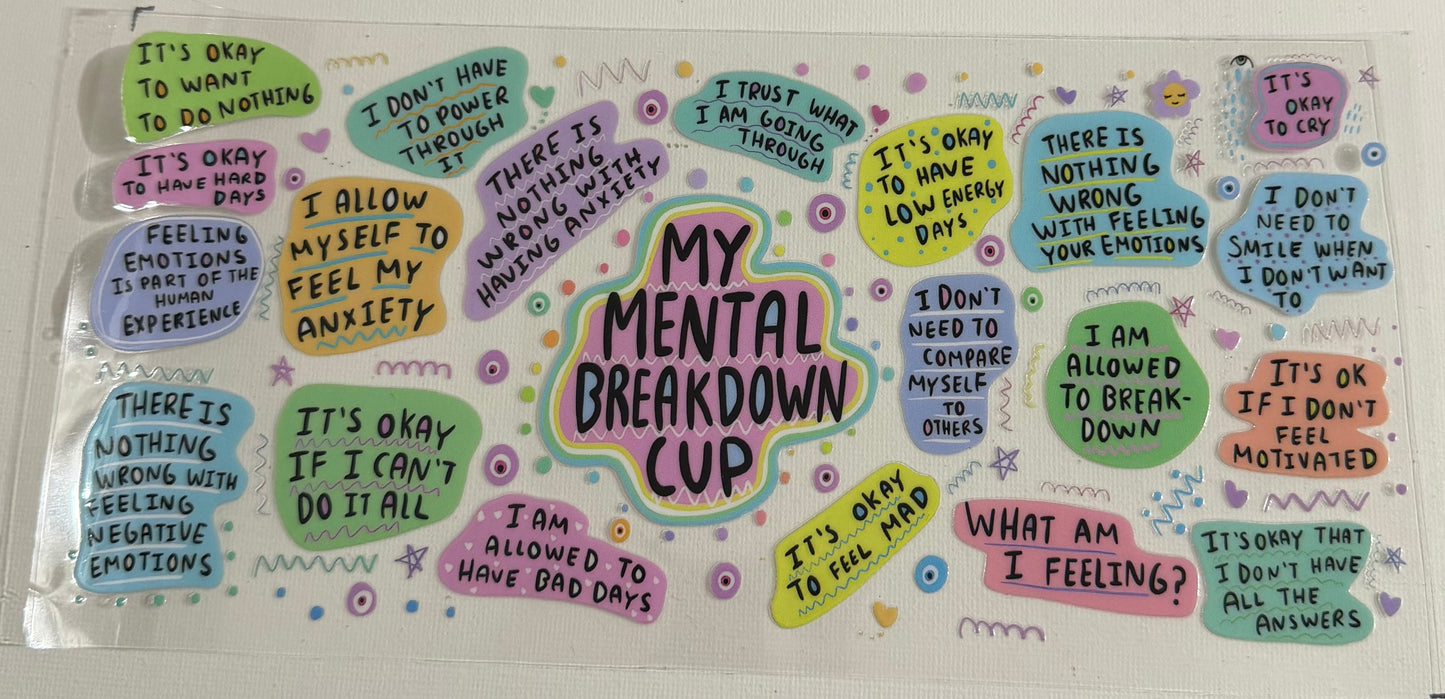 IT'S OKAY
TO WANT
TO DO NOTHING
I DON'T HAVE
TO POWER
THROUGH
IT
THERE IS
NOTHING
WRONG WITH
HAVING ANXIETY
I TRUST WHAT
I AM GOING
THROUGH
IT'S OKAY
TO HAVE
LOW ENERGY
DAYS
THERE IS
NOTHING
WRONG
WITH FEELING
YOUR EMOTIONS
IT'S
OKAY
TO CRY
IT'S OKAY
TO HAVE HARD
DAYS
I ALLOW
MYSELF TO
FEEL MY
ANXIETY
FEELING
EMOTIONS
IS PART OF THE
HUMAN
EXPERIENCE
MY
MENTAL
BREAKDOWN
CUP
I DON'T
NEED TO
COMPARE
MYSELF
TO
OTHERS
I AM
ALLOWED
TO BREAK-
DOWN
I DON'T
NEED TO
SMILE WHEN
I DON'T WANT
TO
THERE IS
NOTHING
WRONG WITH
FEELING
NEGATIVE
EMOTIONS
IT'S OKAY
IF I CAN'T
DO IT ALL
I AM
ALLOWED TO
HAVE BAD DAYS
IT'S OKAY
TO FEEL MAD
WHAT AM
I FEELING?
IT'S OK
IF I DON'T
FEEL
MOTIVATED
IT'S OKAY THAT
I DON'T HAVE
ALL THE
ANSWERS